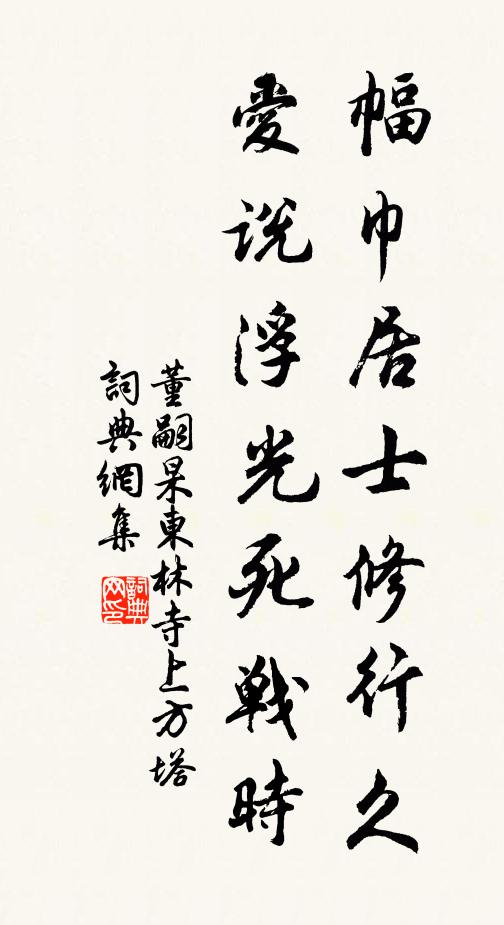 幅巾居士修行久
愛説浮光死戰時
董嗣杲東林寺上方塔
詞典網集
詞典網印